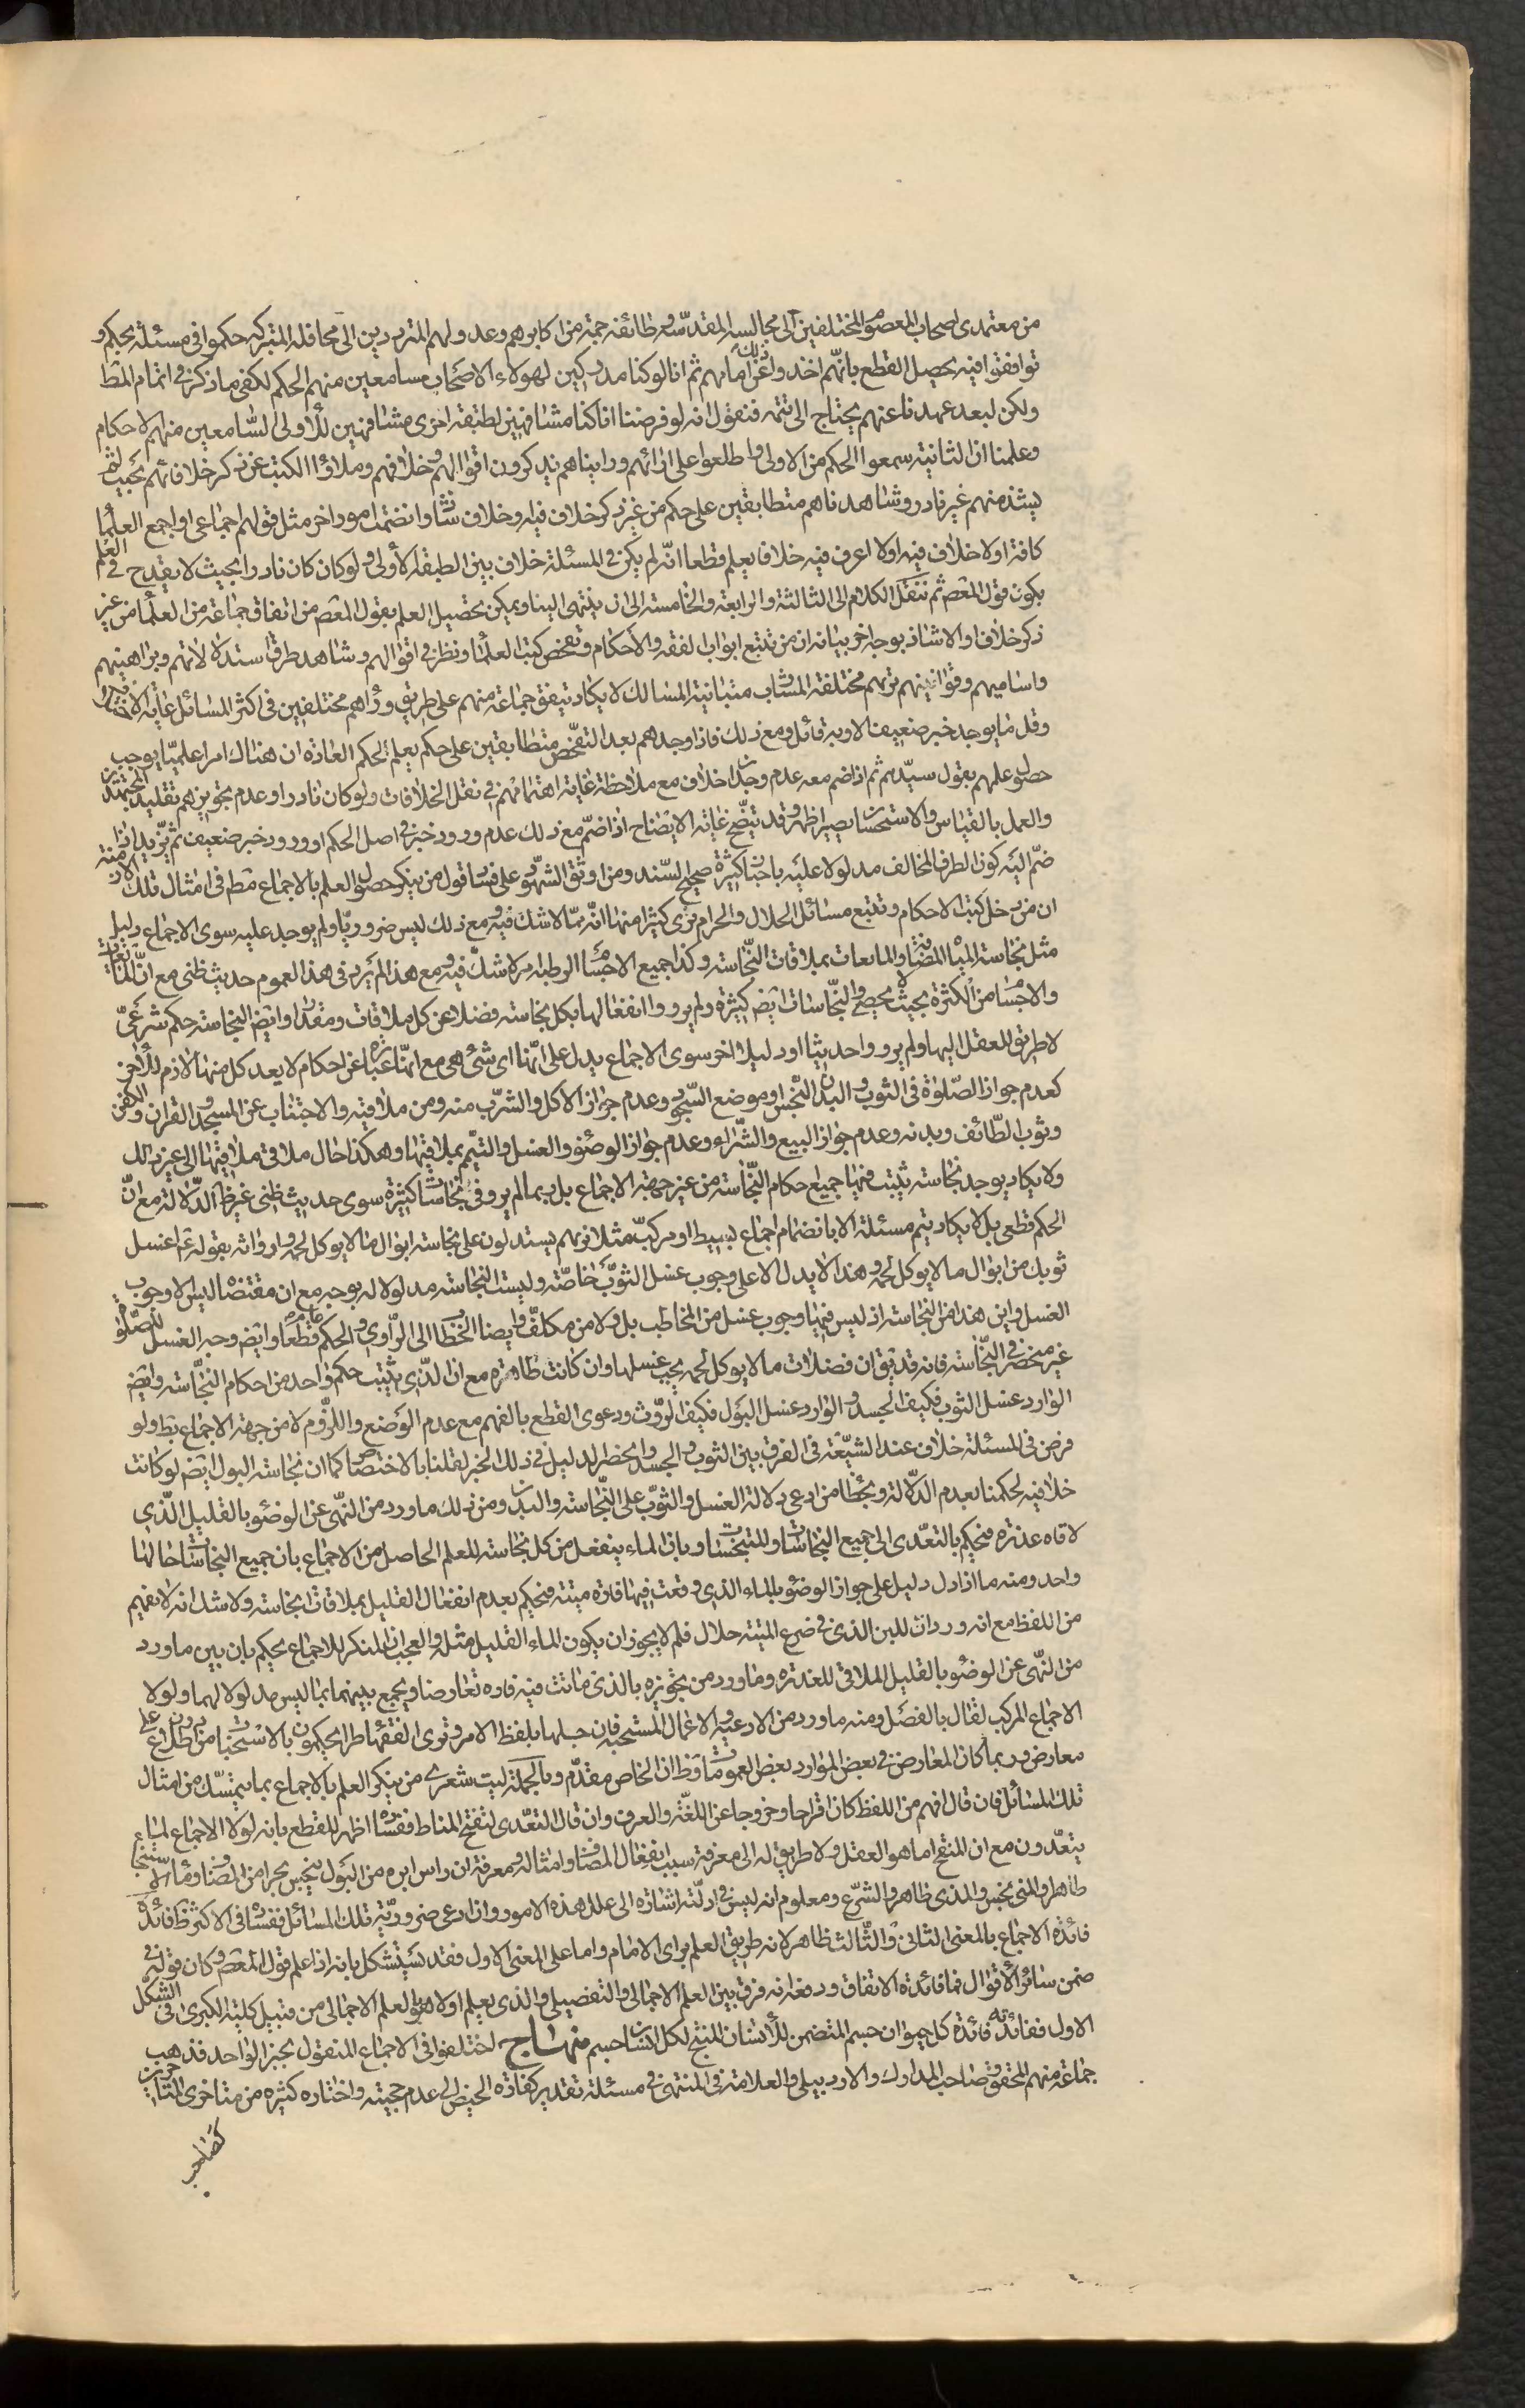 من معتمدى اصحاب المعصوم المختلفين الى مجالسه المقدسة وطائفة جمة من اكابرهم وعدولهم المترددين الى محافله المتبركة حكموا فى مسئلة بحكم و
توافقوا فيه يحصل القطع بانهم اخذوا ذلك عن امامهم ثم انا لو كنا مدركين لهولاء الاصحاب سامعين منهم الحكم لكفى ما ذكر فى اتمام المط
ولكن لبعد عهدنا عنهم يحتاج الى تتمة فنقول انه لو فرضنا انا كنا مشافهين لطبقة اخرى مشافهين للاولى السامعين منهم الاحكام
وعلمنا ان الثانية سمعوا الحكم من الاولى واطلعوا على ارائهم ورايناهم يذكرون اقوالهم وخلافهم وملاؤا الكتب عن ذكر خلافاتهم بحيث لم
يشذ منهم غير نادر وشاهدناهم متطابقين على حكم من غير ذكر خلاف فيه او خلاف شاذ وانضمت امور اخر مثل قولهم اجماعى او اجمع العلماء
كافة او لا خلاف فيه او لا اعرف فيه خلافا يعلم قطعا انه لم يكن فى المسئلة خلاف بين الطبقة الاولى ولو كان كان نادرا بحيث لا يقدح فى العلم
بكونه قول المعصوم ثم ننقل الكلام الى الثالثة والرابعة والخامسة الى ان ينتهى الينا ويمكن تحصيل العلم بقول المعصوم من اتفاق جماعة من العلماء من غير
ذكر خلاف او الا شاذ بوجه اخر بيانه ان من تتبع ابواب الفقه والاحكام وتفحص كتب العلماء ونظر فى اقوالهم وشاهد طرق استدلالاتهم وبراهينهم
واساميهم وقوانينهم تريهم مختلفة المشارب متباينة المسالك لا يكاد يتفق جماعة منهم على طريق وراهم مختلفين فى اكثر المسائل غاية الاختلاف
وقل ما يوجد خبر ضعيف الا وبه قائل ومع ذلك فاذا وجدهم بعد التفحص متطابقين على حكم يعلم بحكم العادة ان هناك امرا علميا يوجب
حصول علمهم بقول سيدهم ثم اذا ضم معه عدم وجدان خلاف مع ملاحظة غاية اهتمامهم فى نقل الخلافات ولو كان نادرا وعدم تجويزهم تقليد المجتهدين
والعمل بالقياس والاستحسان يصير اظهر وقد يتضح غاية الايضاح اذا ضم مع ذلك عدم ورود خبر فى اصل الحكم او ورود خبر ضعيف ثم يزيد اذا
ضم اليه كون الطرف المخالف مدلولا عليه باخبار كثيرة صحيح السند ومن اوثق الشهود على فساد قول من ينكر حصول العلم بالاجماع مط فى امثال تلك الازمنة
ان من دخل كتب الاحكام وتتبع مسائل الحلال والحرام يرى كثيرا منها انه مما لا شك فيه ومع ذلك ليس ضروريا ولم يوجد عليه سوى الاجماع دليل
مثل نجاسة المياه المضافة والمايعات بملاقات النجاسة وكذا جميع الاجسام الرطبة مما لا شك فيه ومع هذا لم يرد فى هذا العموم حديث ظنى مع ان المايعات
والاجسام من الكثرة بحيث لا يحصى والنجاسات ايضا كثيرة ولم يرووا انفعالها بكل نجاسة فضلا عن كل ملاقات ومقدار وايضا النجاسة حكم شرعى
لا طريق للعقل اليها ولم يرووا حديثا او دليلا اخر سوى الاجماع يدل على انها اى شىء هى مع انها عبارة عن احكام لا يعد كل منها لازم للاخر
كعدم جواز الصلوة فى الثوب والبدن النجس او موضع السجود وعدم جواز الاكل والشرب منه ومن ملاقيه والاجتناب عن المسجد والقران والكفن
وثوب الطائف وبدنه وعدم جواز البيع والشراء وعدم جواز الوضوء والغسل والتيمم بملاقيها وهكذا حال ملاقى ملاقيها الى غير ذلك
ولا يكاد يوجد نجاسة يثبت فيها جميع احكام النجاسة من غير جهة الاجماع بل ربما لم يرو فى نجاسات كثيرة سوى حديث ظنى غير ظاهر الدلالة مع ان
الحكم قطعى بل لا يكاد يتم مسئلة الا بانضمام اجماع بسيط او مركب مثلا نريهم يستدلون على نجاسة ابوال ما لا يوكل لحمه وارواثه بقوله ع اغسل
ثوبك من ابوال ما لا يوكل لحمه وهذا لا يدل الا على وجوب غسل الثوب خاصة وليست النجاسة مدلولا له بوجه مع ان مقتضاه ليس الا وجوب
الغسل واين هذا من النجاسة اذ ليس فيها وجوب غسل من المخاطب بل ولا من مكلف وايضا الخطاب الى الراوى والحكم عام قطعا وايضا وجه الغسل للصلوة
غير منحصر فى النجاسة فانه قد يق ان فضلات ما لا يوكل لحمه يجب غسلها وان كانت طاهرة مع ان الذى يثبت حكم واحد من احكام النجاسة وايضا
الوارد غسل الثوب فكيف الجسد والوارد غسل البول فكيف الروث ودعوى القطع بالفهم مع عدم الوضع واللزوم لا من جهة الاجماع بط ولو
فرض فى المسئلة خلاف عند الشيعة فى الفرق بين الثوب والجسد وانحصر الدليل فى ذلك الخبر لقلنا بالاختصاص كما ان نجاسة البول ايضا لو كانت
خلافيه لحكمنا بعدم الدلالة ويخطا من ادعى دلالة الغسل والثوب على النجاسة والبدن ومن ذلك ما ورد من النهى عن الوضوء بالقليل الذى
لاقاه عذرة فيحكم بالتعدى الى جميع النجاسات والمتنجسات وبان الماء ينفعل من كل نجاسة للعلم الحاصل من الاجماع بان جميع النجاسات حالها
واحد ومنه ما اذا دل دليل على جواز الوضوء بالماء الذى وقعت فيها فارة ميتة فيحكم بعدم انفعال القليل بملاقات النجاسة ولا شك انه لا يفهم
من اللفظ مع انه ورد ان اللبن الذى فى ضرع الميتة حلال فلم لا يجوز ان يكون الماء القليل مثله والعجب ان المنكر للاجماع يحكم بان بين ما ورد
من النهى عن الوضوء بالقليل الملاقى للعذرة وما ورد من تجويزه بالذى ماتت فيه فارة تعارضا ويجمع بينهما بما ليس مدلولا لهما ولولا
الاجماع المركب لقال بالفصل ومنه ما ورد من الادعية والاغمال المستحبة فان جلها بلفظ الامر وترى الفقهاء طرا يحكمون بالاستحباب من دون اطلاع على
معارض وربما كان المعارض فى بعض الموارد بعض العمومات وظ ان الخاص مقدم وبالجملة ليت شعرى من ينكر العلم بالاجماع بما يتمسك من امثال
تلك المسائل فان قال افهم من اللفظ كان اقراحا وخروجا عن اللغة والعرف وان قال التعدى لتنقيح المناط ففساده اظهر للقطع بانه لولا الاجماع لما
يتعدون مع ان المنقح اما هو العقل ولا طريق له الى معرفة سبب انفعال المضاف وامثاله ومعرفة ان راس ابرة من البول ينجس بحرا من المضاف وماء الاستنجاء
طاهر والمنى نجس والمذى طاهر والشرع ومعلوم انه ليس فى ادلته اشارة الى علل هذه الامور وان ادعى ضرورية تلك المسائل ففساده فى الاكثر ظ فائدة
فائدة الاجماع بالمعنى الثانى والثالث ظاهر لانه طريق العلم براى الامام واما على المعنى الاول فقد يستشكل بانه اذا علم قول المعصوم وكان قوله فى
ضمن سائر الاقوال فما فائدة الاتفاق ودفعه انه فرق بين العلم الاجمالى والتفصيلى والذى يعلم اولا هو العلم الاجمالى من قبيل كلية الكبرى فى الشكل
الاول ففائدته فائدة كل حيوان جسم المتضمن للانسان المنتج لكل انسان جسم منهاج اختلفوا فى الاجماع المنقول بخبر الواحد فذهب
جماعة منهم المحقق وصاحب المدارك والاردبيلى والعلامة فى المنتهى فى مسئلة تقدير كفارة الحيض الى عدم حجيته واختاره كثيره من متاخرى المتاخرين
كصاحب